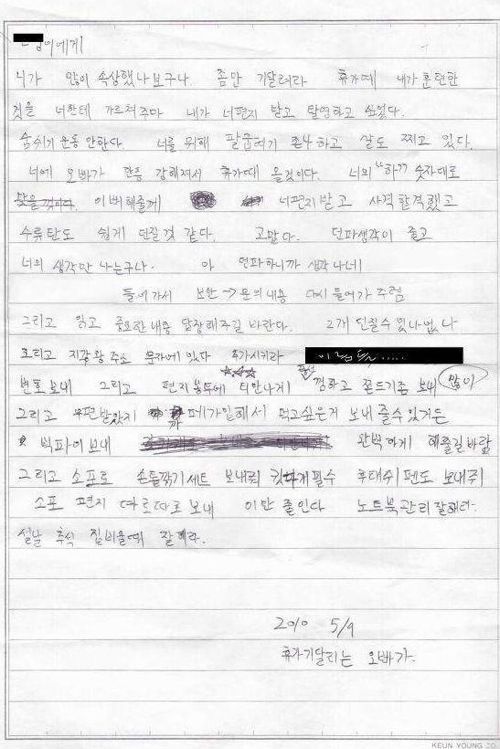 이에게
니가 많이 속상했나보구나. 좀만 기달려라 휴가때 내가 훈련한
것을 너한테 가르쳐주마 내가 너편지 받고 탈영하고 싶었다.
숨쉬기 운동 안한다 너를 위해 팔굽혀기 존나 하고 살도 찌고 있다.
너에 오빠가 한층 강해져서 휴가때 올것이다. 너의 "하??" 숫자대로
이뻐해줄게 너편지받고 사격합격했고
수류탄도 쉽게 던질것 같다. 고맙다. 던파생각이 줄고
너의 생각만 나는구나. 아 던파하니까 생각나네
들어가서 보안→문의내용 다시 들어가 주렴
그리고 읽고 중요한내용 답장해주길 바란다. 2개 던질수있나없나
그리고 지갑왕 주소 문자에 있다 추가시키라
번호 보내 그리고 편지봉투에 티안나게 껌하고 쫀드기좀 보내 많이
그리고 우편받았지 까페가입해서 먹고싶은거 보내 줄수 있거든
빅파이보내 완벽하게 해줄길바람
그리고 소포로 손톱깎기세트 보내줘 필수 후레쉬펜도 보내줘
소포 편지 따로따로 보내 이만 줄인다 노트북관리 잘해라.
설날 추석 집비울때 잘해라.
2010 5/9
휴가기달리는 오빠가.
KEUN YOUNG